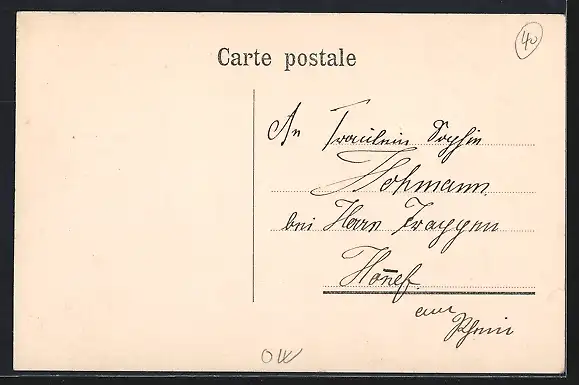 Carte postale
40
An Fräulein Sophie
Hohmann
bei Herrn Trappen
Honnef
am
Rhein
OW